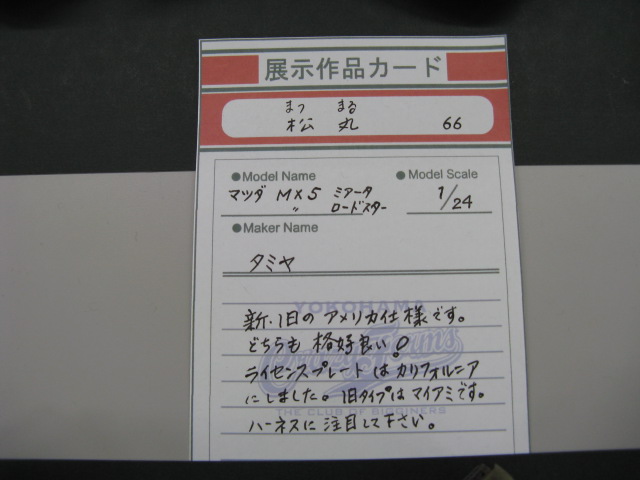 展示作品カード
まつ まる
松 丸 66
●Model Name ●Model Scale
マツダ MX5 ミアータ 1/24
〃 ロードスター
●Maker Name
タミヤ
YOKOHAMA
新・旧のアメリカ仕様です。
どちらも格好良い!
ライセンスプレートはカリフォルニア
にしました。旧タイプはマイアミです。
THE CLUB OF BIGGINERS
ハーネスに注目して下さい。